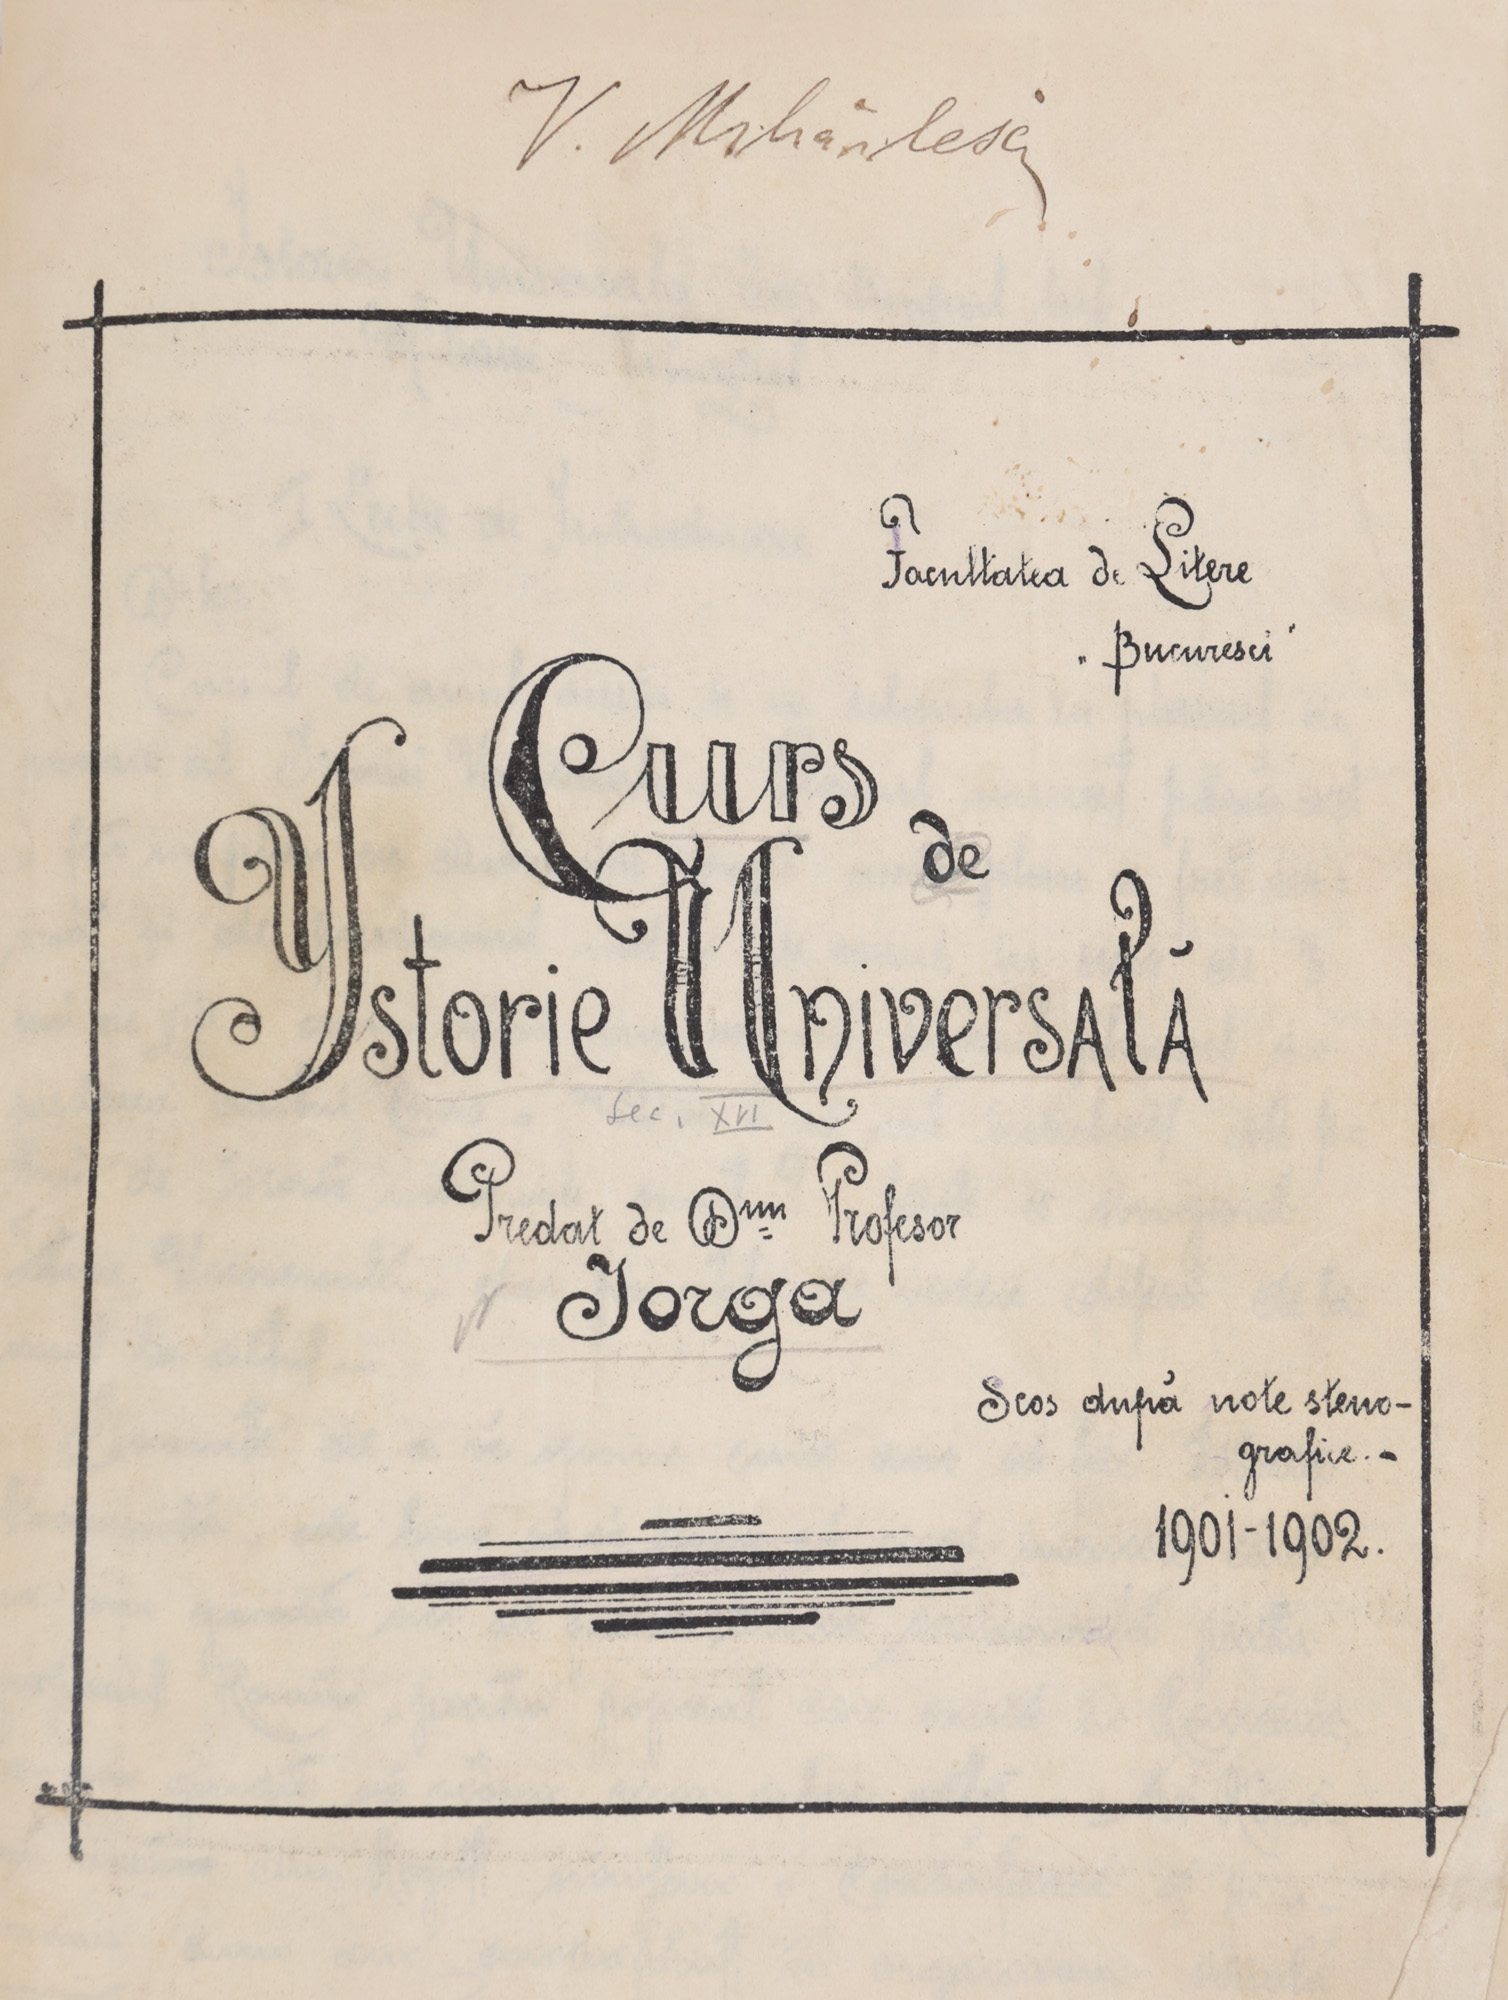 V. Mihăilescu
Facultatea de Litere
„ Bucuresci "
Curs
de
Istorie Universală
Sec. XVI
Predat de Dnu Profesor
N. Iorga
Scos după note steno-
grafice.-
1901-1902.